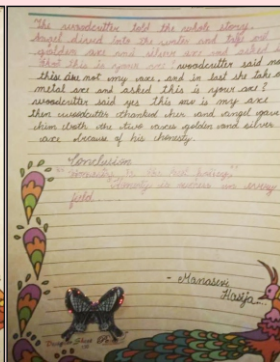 The woodcutter told the whole story.
Angel dived into the water and take out
golden axe and silver axe and asked is
that this is your axe! woodcutter said no
this is not my axe, and in last she take a
metal axe and asked this is your axe?
woodcutter said yes this one is my axe
then woodcutter thanked her and angel gave
him cloth the two axes golden and silver
axe because of his honesty.
Conclusion
"Honesty is the best policy"
Honesty is in every
field.
- Manasvi
Hasija....